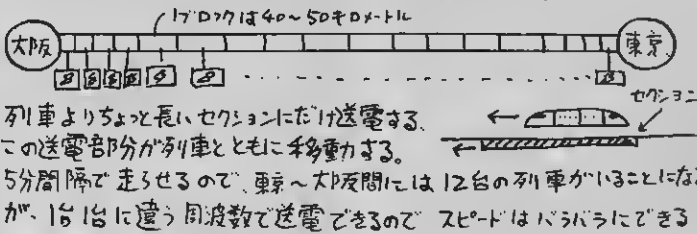 1ブロックは40〜50キロメートル
大阪
東京
セクション
列車よりちょっと長いセクションにだけ送電する、
この送電部分が列車とともに移動する。
5分間隔で走らせるので、東京〜大阪間には12台の列車がいることにな
が、1台1台に違う周波数で送電できるので スピードはバラバラにできる